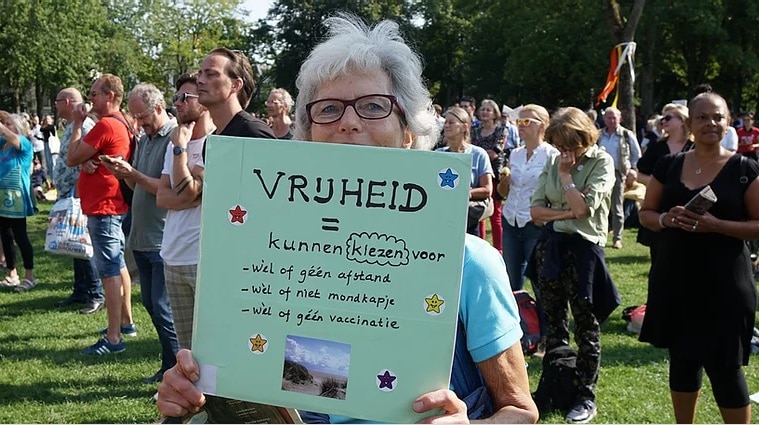 VRIJHEID
=
kunnen kiezen voor
- Wèl of géén afstand
- Wèl of niet mondkapje
- Wèl of géén vaccinatie